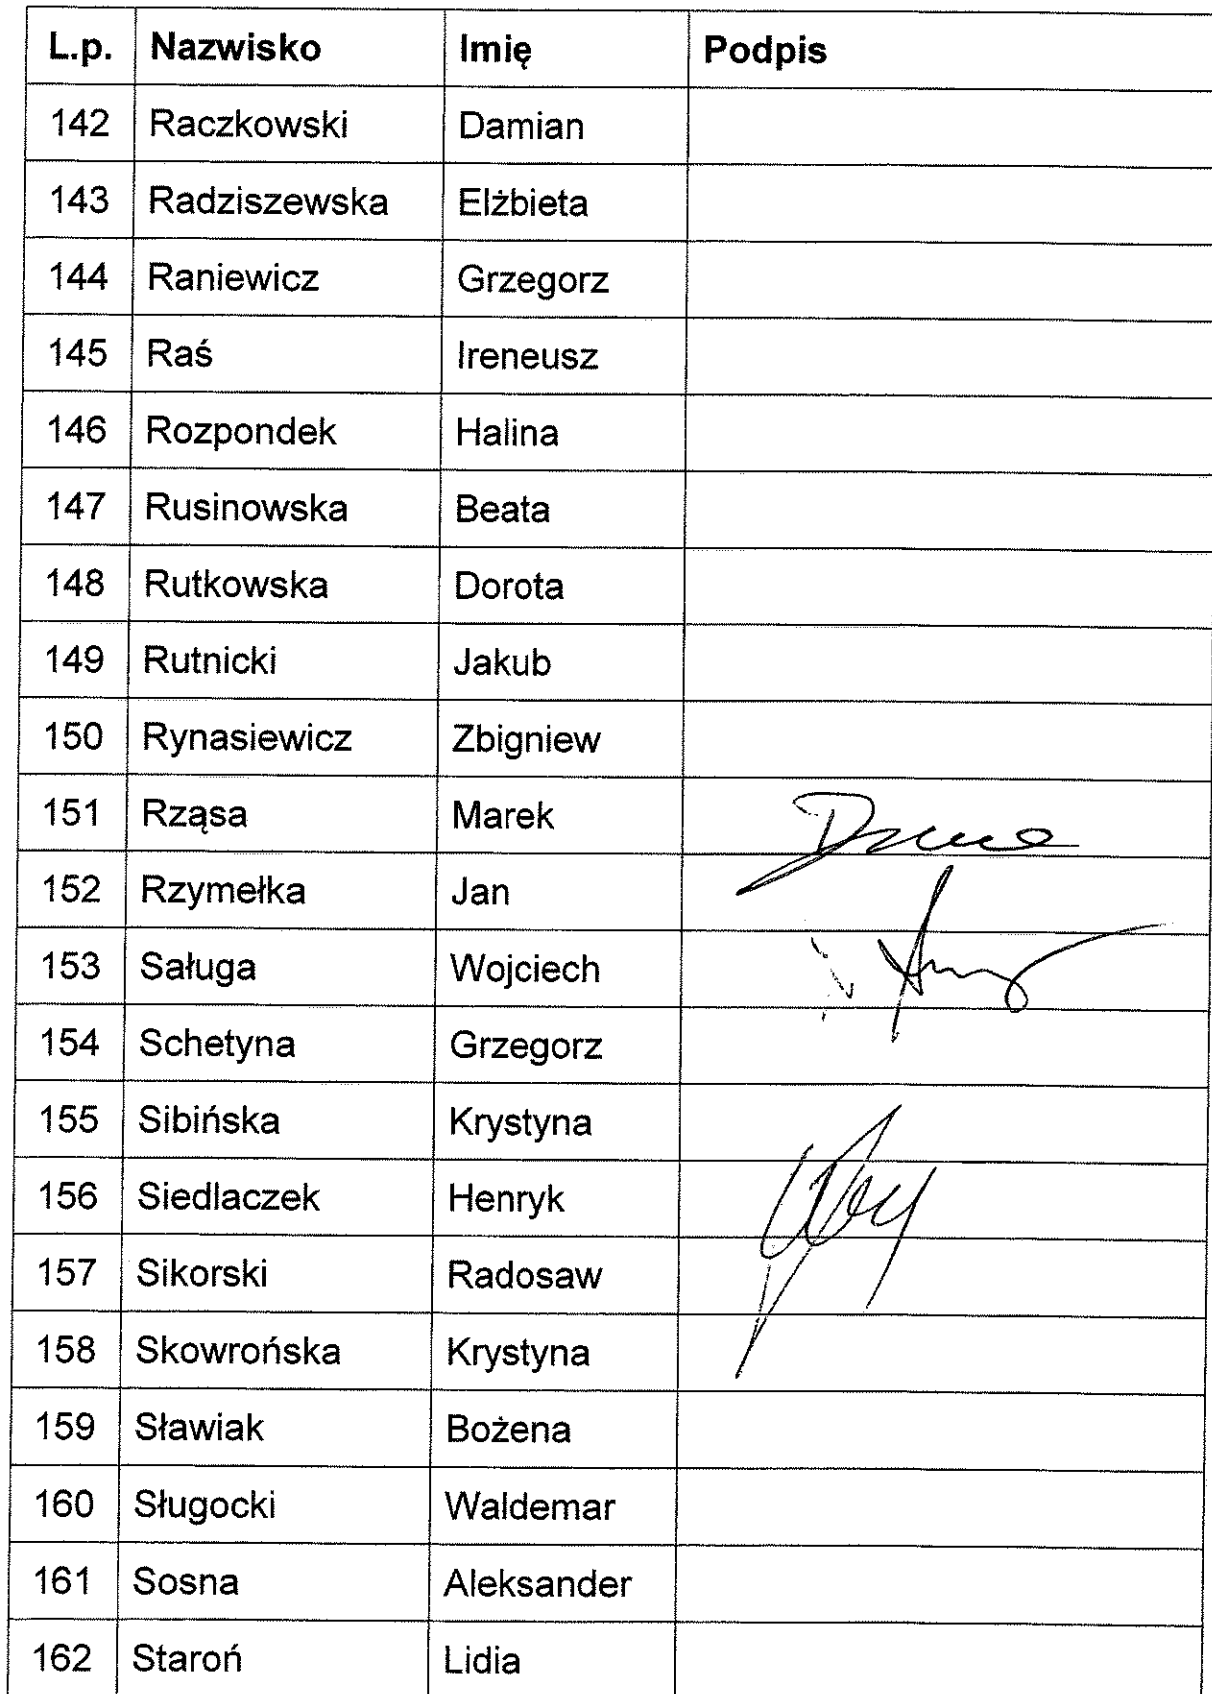 L.p. Nazwisko Imię Podpis
142 Raczkowski Damian
143 Radziszewska Elżbieta
144 Raniewicz Grzegorz
145 Raś Ireneusz
146 Rozpondek Halina
147 Rusinowska Beata
148 Rutkowska Dorota
149 Rutnicki Jakub
150 Rynasiewicz Zbigniew
151 Rząsa Marek
152 Rzymełka Jan
153 Saługa Wojciech
154 Schetyna Grzegorz
155 Sibińska Krystyna
156 Siedlaczek Henryk
157 Sikorski Radosaw
158 Skowrońska Krystyna
159 Sławiak Bożena
160 Sługocki Waldemar
161 Sosna Aleksander
162 Staroń Lidia